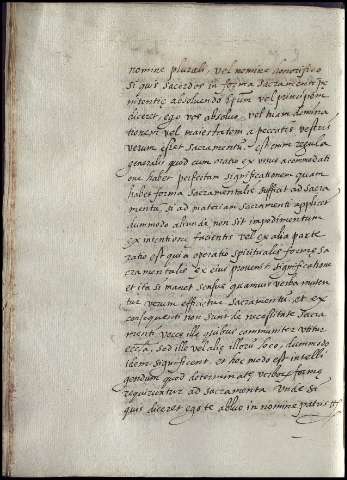 nomine plurali, vel nomine honorifico
si quis sacerdos in forma Sacramenti pę
nitentię absoluendo ipsum vel principem
diceret, ego vos absoluo, vel tuam domina
tionem vel maiestatem a peccatis vestris
verum esset Sacramentū. est enim regula
generalis quod cum oratio ex usus acommodati
one habet perfectam significationem quam
habet forma Sacramentalis sufficit ad sacra
mentū, si ad materiam sacramenti applicet
dummodo aliunde non sit impedimentum
ex intentione facientis vel ex alia parte
ratio est quia operatio spiritualis formę sa
cramentalis ex eius provenit significatione
et ita si manet sensus quamuis verba muten
tur verum efficitur Sacramentū, et ex
consequenti non sunt de necessitate Sacra
menti voces illę quibus communiter vtitur
eccła, sed illę vel alię illarū loco, dummodo
idem significent, et hoc modo est intelli
gendum quod determinatę verborū formę
requirantur ad sacramenta. Vnde si
quis diceret ego te abluo in nomine patris